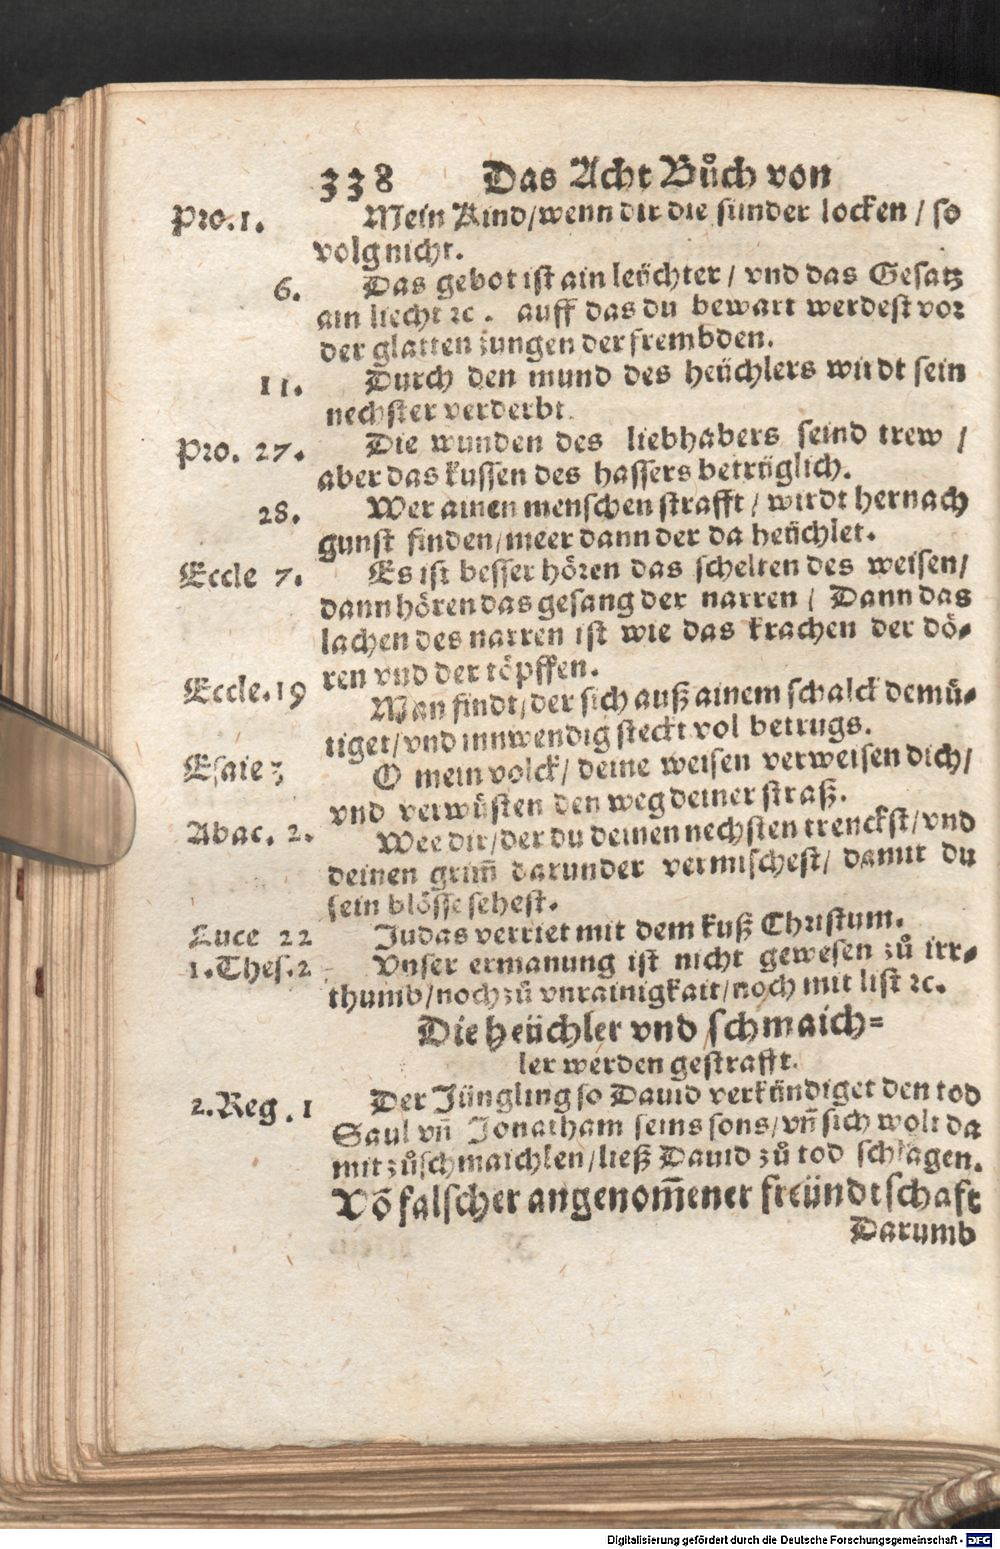 338 Das Acht Bůch von
Pro.1. Mein Kind/wenn dir die sunder locken / so
volg nicht.
6. Das gebot ist ain leüchter / vnd das Gesatz
ain liecht ꝛc. auff das du bewart werdest vor
der glatten zungen der frembden.
11. Durch den mund des heüchlers wirdt sein
nechster verderbt.
Pro. 27. Die wunden des liebhabers seind trew /
aber das kussen des hassers betrüglich.
28. Wer ainen menschen strafft / wirdt hernach
gunst finden/meer dann der da heüchlet.
Eccle 7. Es ist besser hören das schelten des weisen/
dann hören das gesang der narren / Dann das
lachen des narren ist wie das krachen der dö⸗
ren vnd der töpffen.
Eccle.19 Man findt/der sich auß ainem schalck demü⸗
tiget/vnd innwendig steckt vol betrugs.
Esaie 3 O mein volck/ deine weisen verweisen dich/
vnd verwüsten den weg deiner straß.
Abac. 2. Wee dir/der du deinen nechsten trenckst/vnd
deinen grim̃ darunder vermischest/ damit du
sein blösse sehest.
Luce 22 Judas verriet mit dem kuß Christum.
1.Thes.2 Vnser ermanung ist nicht gewesen zů irr⸗
thumb/noch zů vnrainigkait/noch mit list ꝛc.
Die heüchler vnd schmaich⸗
ler werden gestrafft.
2.Reg.1 Der Jüngling so Dauid verkündiget den tod
Saul vñ Jonatham seins sons/vñ sich wolt da
mit zůschmaichlen/ließ Dauid zů tod schlagen.
Võ falscher angenom̃ener freündtschaft
Darumb
Digitalisierung gefördert durch die Deutsche Forschungsgemeinschaft - DFG